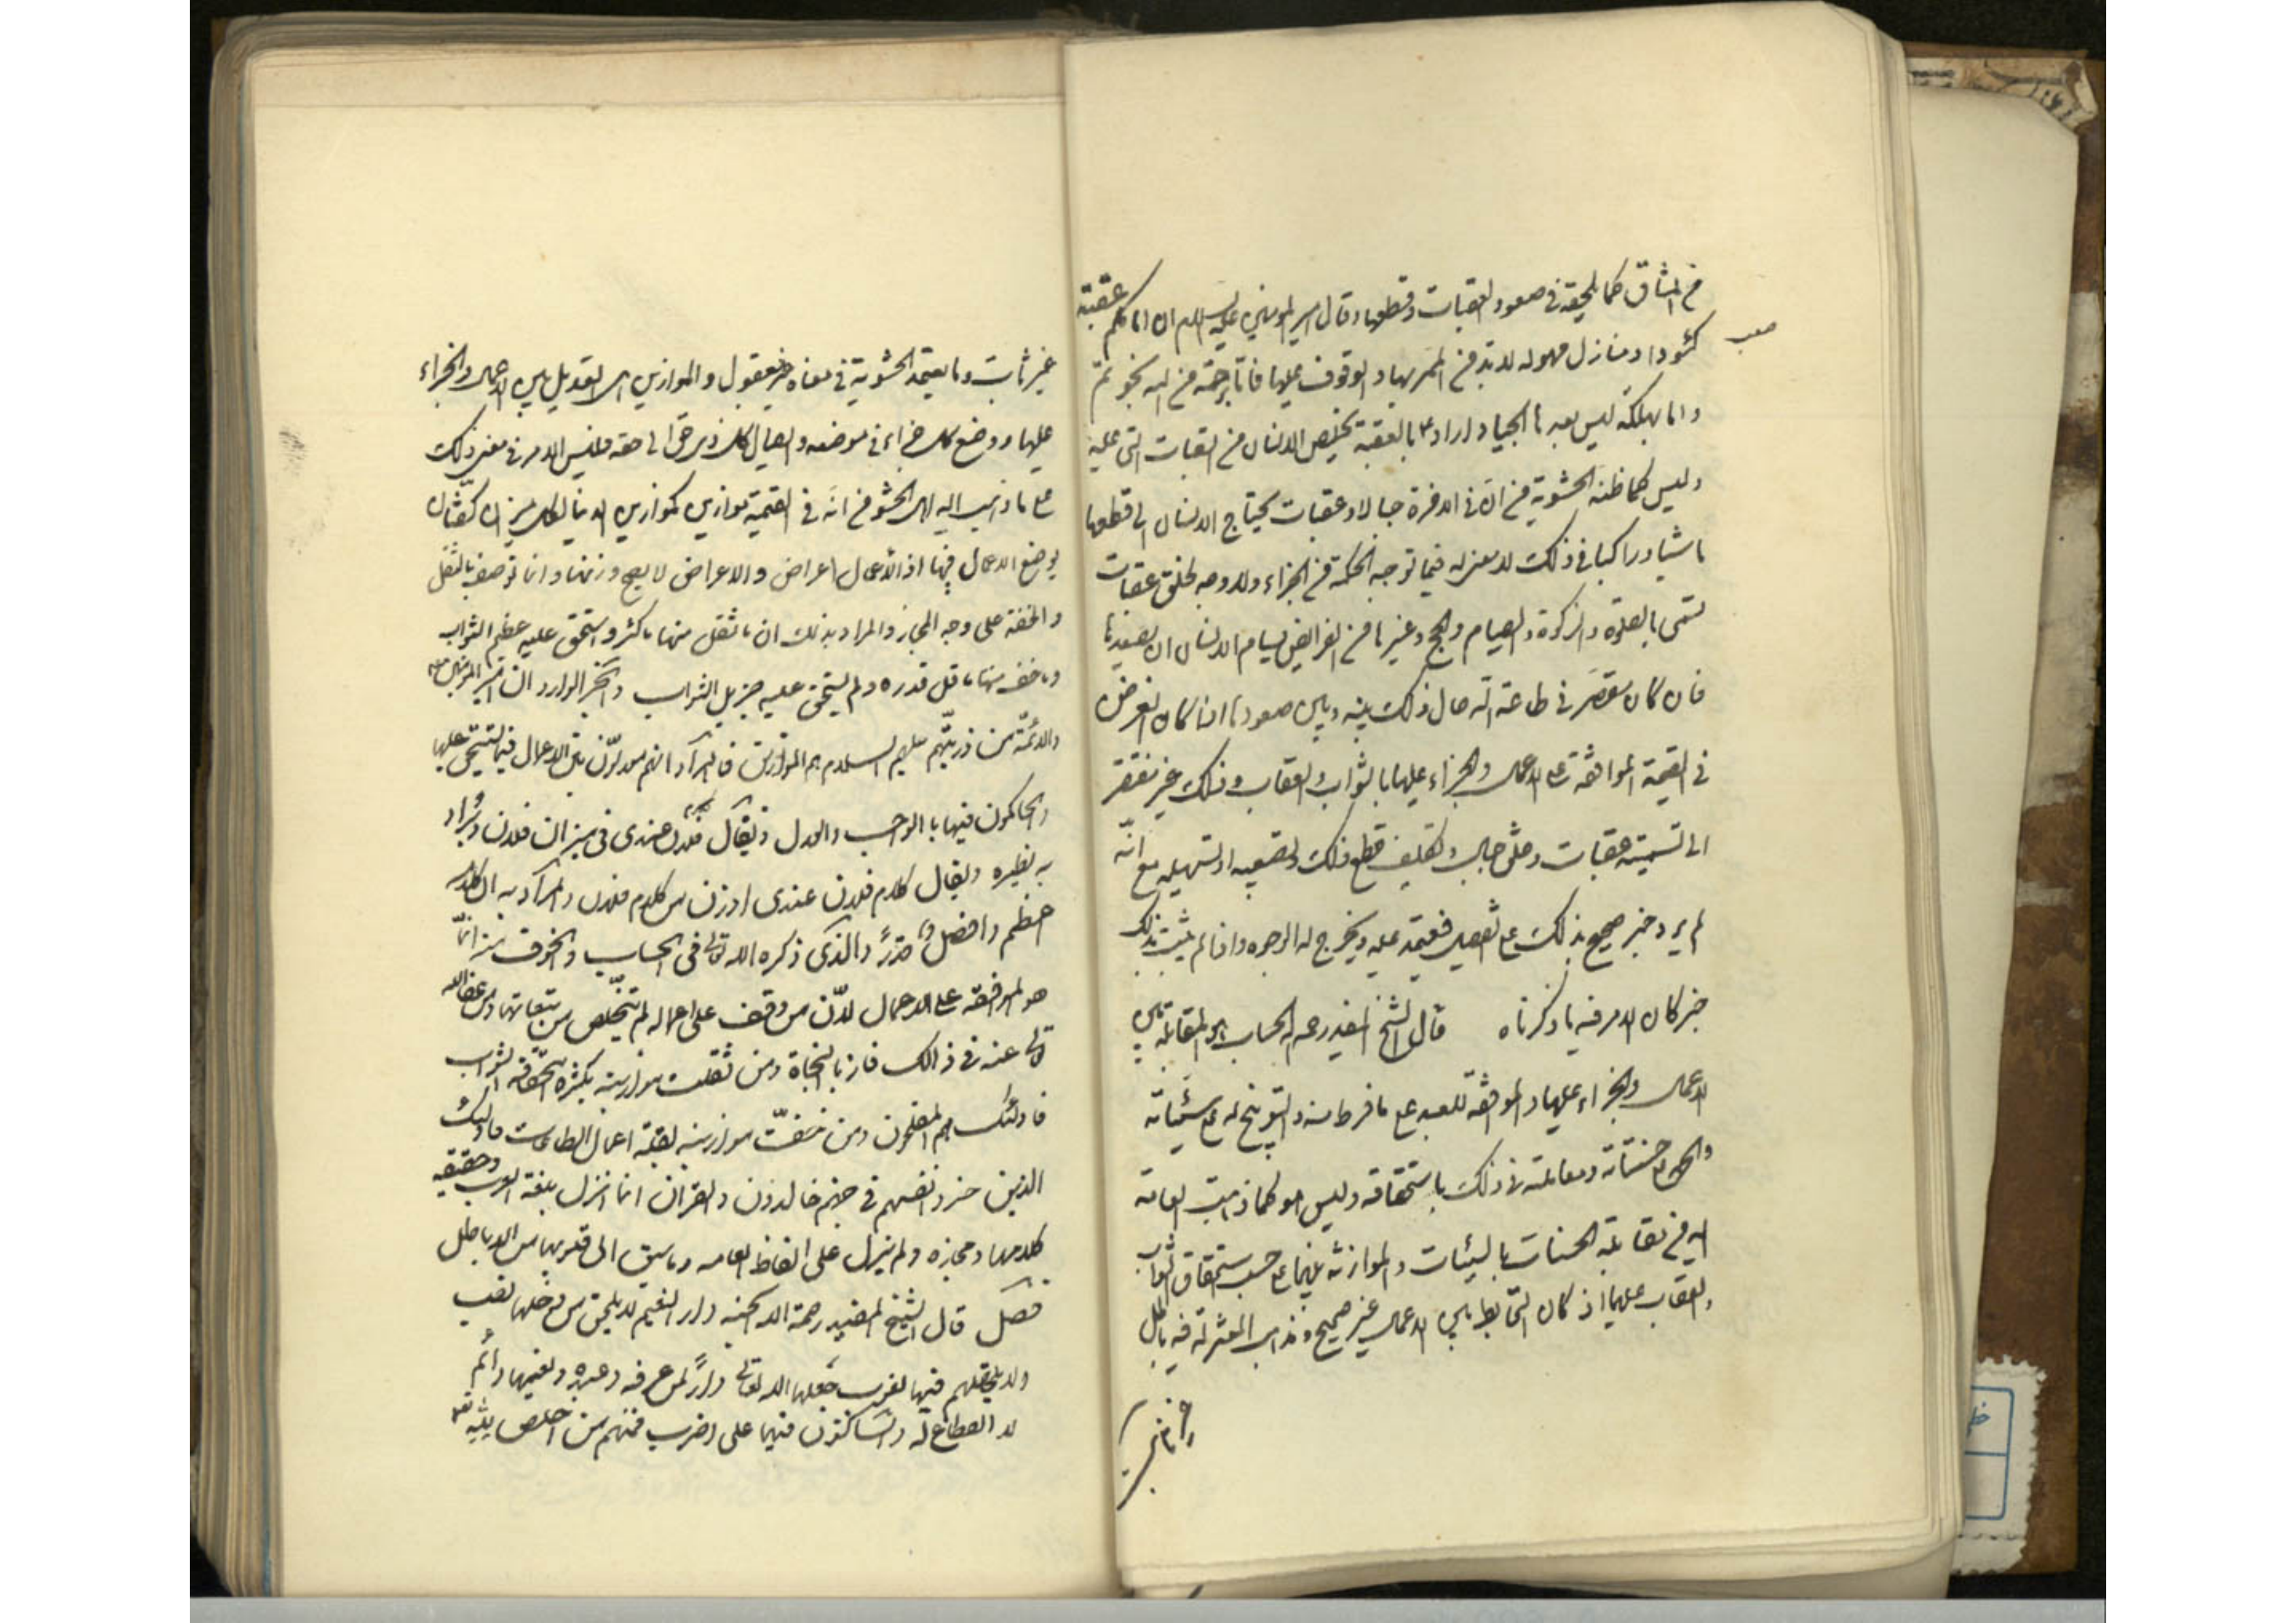 من المشاق كما يلحقه في صعود العقبات وقطعها وقال امير المومنين عليه السلام ان امامكم عقبة
كئودا ومنازل مهولة لابد من الممر بها والوقوف عليها فاما برحمة من الله نجوتم
واما بهلكة ليس بعدها انجبار اراد ع بالعقبة تخلص الانسان من العقبات التي عليه
وليس كما ظنه الحشوية من ان في الاخرة جبالا وعقبات يحتاج الانسان الى قطعها
ماشيا وراكبا وذلك لا معنى له فيما توجبه الحكمة من الجزاء ولا وجه لخلق عقبات
تسمى بالصلوة والزكوة والصيام والحج وغيرها من الفرائض يسام الانسان ان يصعدها
فان كان مقصرا في طاعة الله حال ذلك بينه وبين صعودها اذا كان الغرض
في القيمة الموافقة على الاعمال والجزاء عليها بالثواب والعقاب وذلك غير مفتقر
الى تسمية عقبات وخلق جبال وتكليف قطع ذلك وتصعيبه او تسهيله مع انه
لم يرد خبر صحيح بذلك على تفصيل فيعتمد عليه ويخرج له الوجوه واذا لم يثبت بذلك
خبر كان الامر فيه ما ذكرناه قال الشيخ المفيد رحمه الله الحساب هو المقابلة بين
الاعمال والجزاء عليها والموافقة للعبد على ما فرط منه والتوبيخ له على سيئاته
والحمد على حسناته ومعاملته في ذلك باستحقاقه وليس هو كما ذهبت العامة
اليه من مقابلة الحسنات بالسيئات والموازنة بينهما على حسب استحقاق الثواب
والعقاب عليهما اذ كان التحابط بين الاعمال غير صحيح ومذهب المعتزلة فيه باطل
غير ثابت وما يعتمد الحشوية في معناه غير معقول والموازين هي التعديل بين الاعمال والجزاء
عليها ووضع كل جزاء في موضعه وايصال كل ذي حق الى حقه فليس الامر في معنى ذلك
على ما ذهب اليه اهل الحشو من انه في القيمة موازين كموازين الدنيا لكل ميزان كفتان
يوضع الاعمال فيها اذ الاعمال اعراض والاعراض لا يصح وزنها وانما توصف بالثقل
والخفة على وجه المجاز والمراد بذلك ان ما ثقل منها ما كثر واستحق عليه عظيم الثواب
وما خف منها ما قل قدره ولم يستحق عليه جزيل الثواب والخبر الوارد ان امير المؤمنين
والائمة من ذريتهم عليهم السلام هم الموازين فالمراد انهم معدلون بين الاعمال فيما يستحق عليها
والحاكمون فيها بالواجب والعدل ويقال فلان عندي في ميزان فلان ويراد
به نظيره ويقال كلام فلان عندي اوزن من كلام فلان والمراد به ان كلامه
اعظم وافضل قدرا والذي ذكره الله تعالى في الحساب والخوف منه انما
هو الموافقة على الاعمال لان من وقف على اعماله لم يتخلص من تبعاتها ومن عفا الله
تعالى عنه في ذالك فاز بالنجاة ومن ثقلت موازينه بكثرة استحقاقه الثواب
فاولئك هم المفلحون ومن خفت موازينه بقلة اعمال الطاعات فاولئك
الذين خسروا انفسهم في جهنم خالدون والقران انما انزل بلغة العرب وحقيقة
كلامها ومجازه ولم ينزل على الفاظ العامه وما سبق الى قلوبها من الاباطيل
فصل قال الشيخ المفيد رحمة الله الجنة دار النعيم لا يلحق من دخلها نصب
ولا يلحقهم فيها لغوب جعلها الله تعالى دارا لمن عرفه وعبده ونعيمها دائم
لا انقطاع له والساكنون فيها على اضرب فمنهم من اخلص لله تعالى